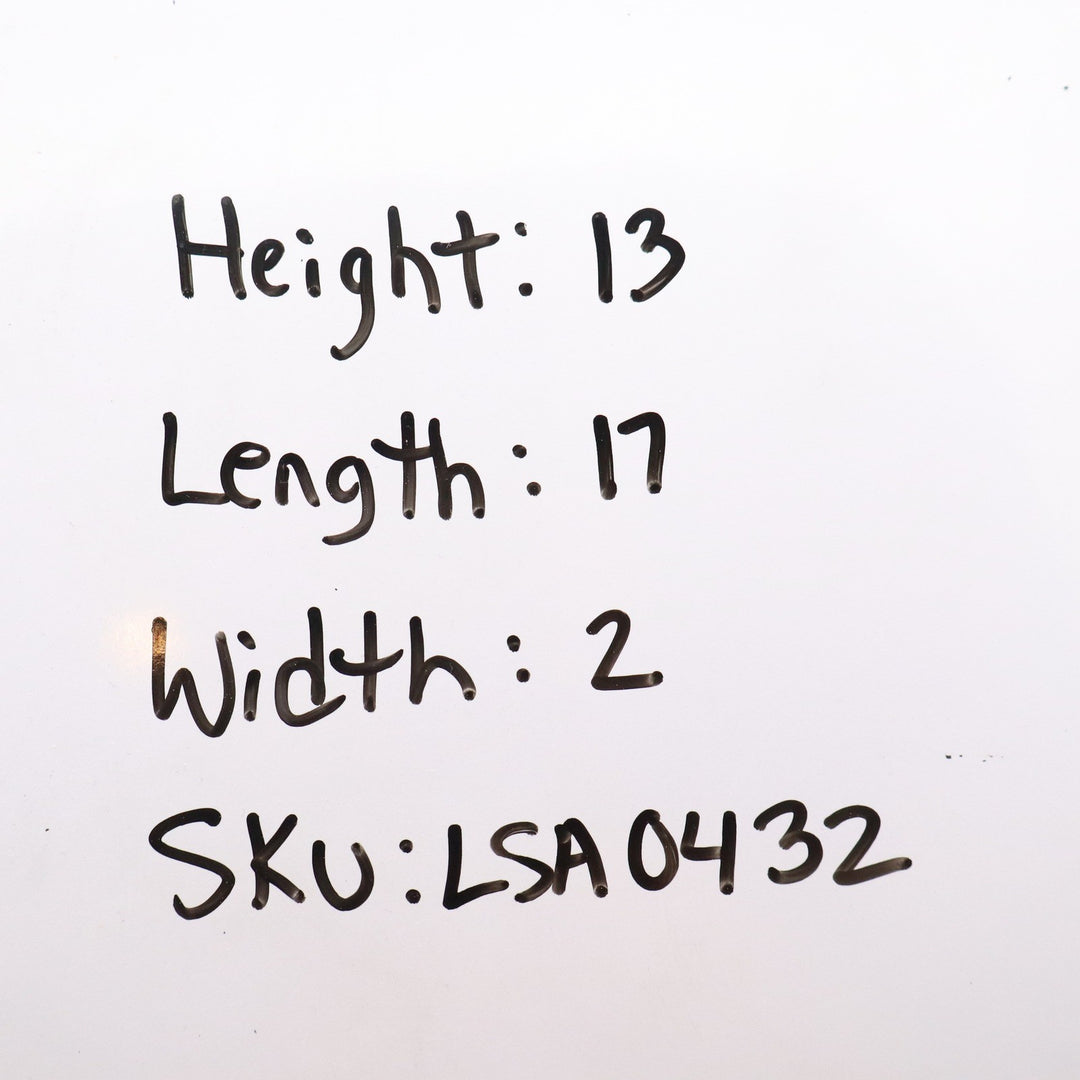 Height: 13
Length: 17
Width: 2
SKU: LSA0432